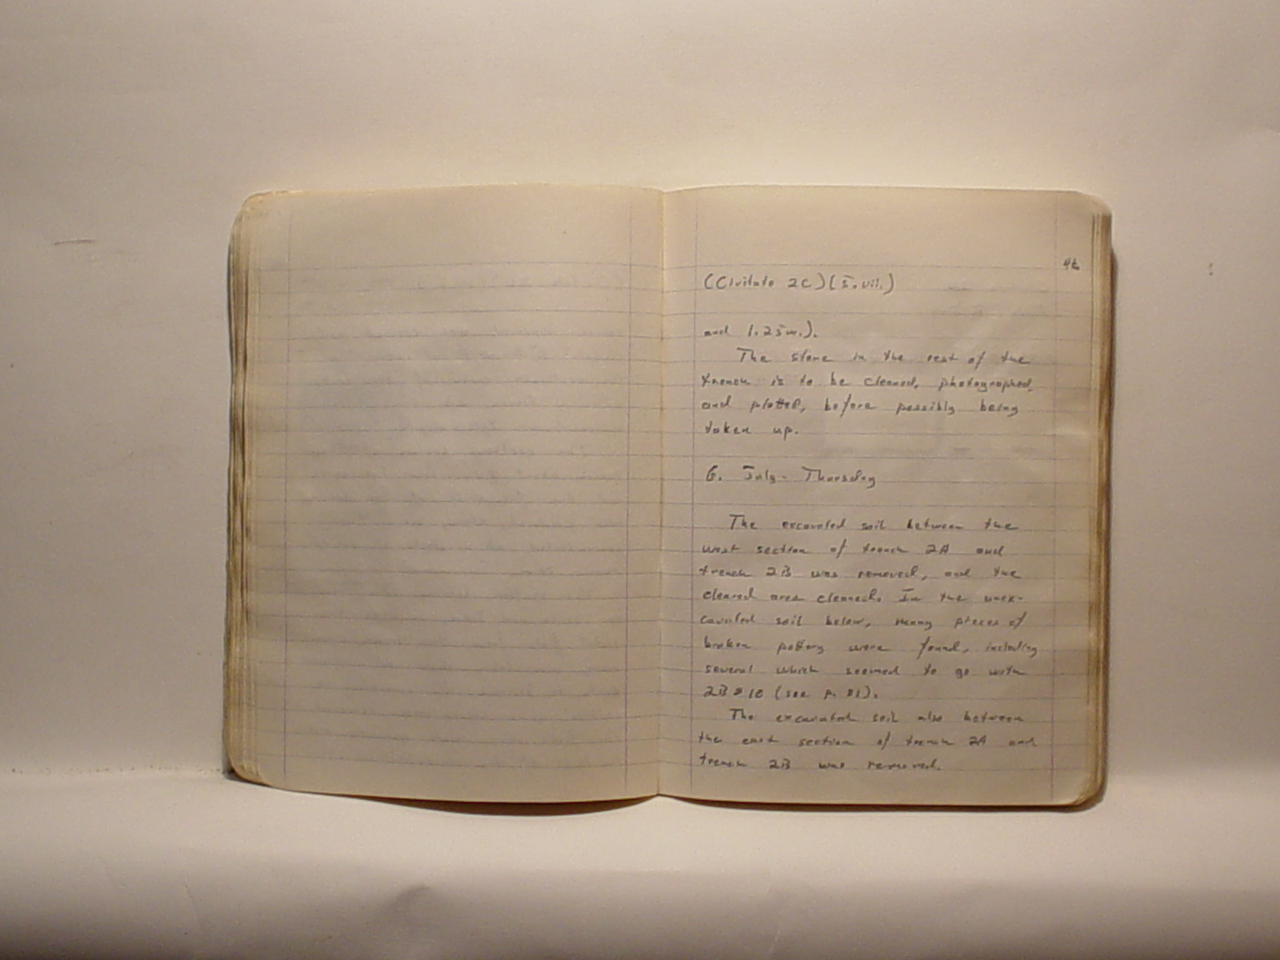 46
(Civitate 2C)(5.vii.)
and 1.25m.).
The stone in the rest of the
trench is to be cleaned, photographed,
and plotted, before possibly being
taken up.
6. July - Thursday
The excavated soil between the
west section of trench 2A and
trench 2B was removed, and the
cleared area cleaned. In the unex-
cavated soil below, many pieces of
broken pottery were found, including
several which seemed to go with
2B#10 (see p. 81).
The excavated soil also between
the east section of trench 2A and
trench 2B was removed.